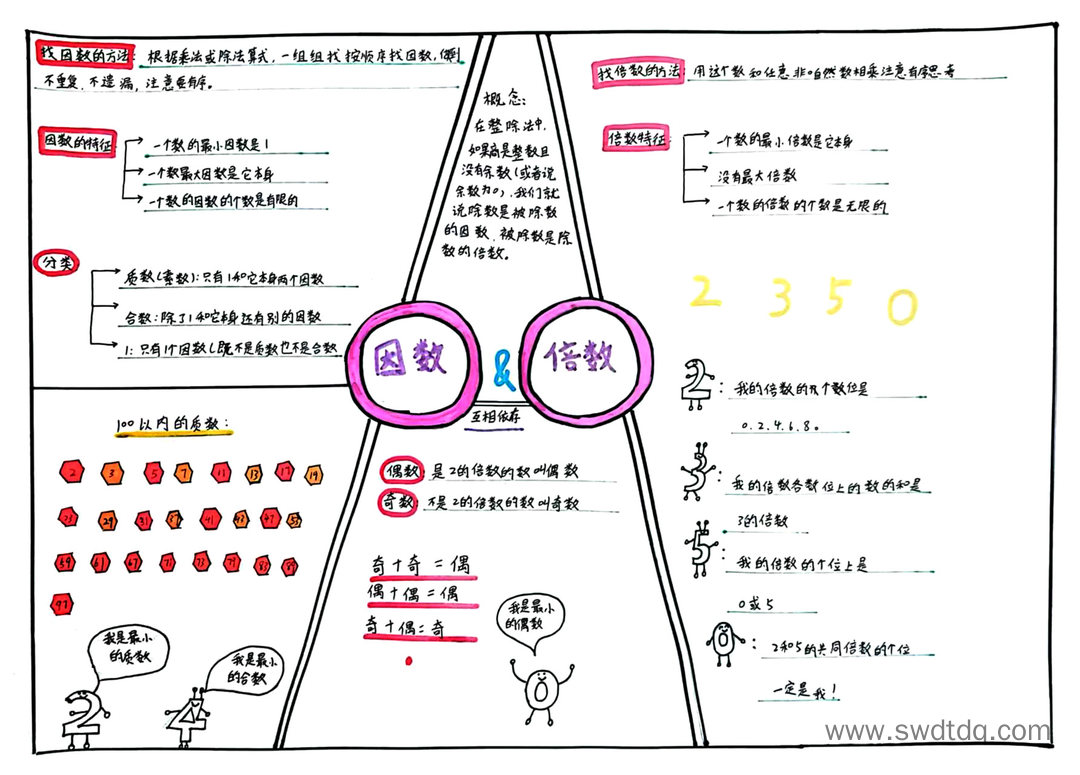 找因数的方法：根据乘法或除法算式，一组组找按顺序找因数，做到
不重复，不遗漏，注意要有序。
因数的特征
一个数的最小因数是1
一个数最大因数是它本身
一个数的因数的个数是有限的
分类
质数（素数）：只有1和它本身两个因数
合数：除了1和它本身还有别的因数
1：只有1个因数（既不是质数也不是合数
概念：
在整除法中，
如果商是整数且
没有余数（或者说
余数为0），我们就
说除数是被除数
的因数，被除数是除
数的倍数。
找倍数的方法：用这个数和任意非0自然数相乘注意有序思考
倍数特征
一个数的最小倍数是它本身
没有最大倍数
一个数的倍数的个数是无限的
2 3 5 0
因数 & 倍数
互相依存
100以内的质数：
2 3 5 7 11 13 17 19
23 29 31 37 41 43 47 53
59 61 67 71 73 79 83 89
97
我是最小
的质数
2
我是最小
的合数
4
偶数：是2的倍数的数叫偶数
奇数：不是2的倍数的数叫奇数
奇+奇=偶
偶+偶=偶
奇+偶=奇
我是最小
的偶数
0
2：我的倍数的个数位是
0.2.4.6.8。
3：我的倍数各数位上的数的和是
3的倍数
5：我的倍数的个位上是
0或5
0：2和5的共同倍数的个位
一定是我！
www.swdtdq.com